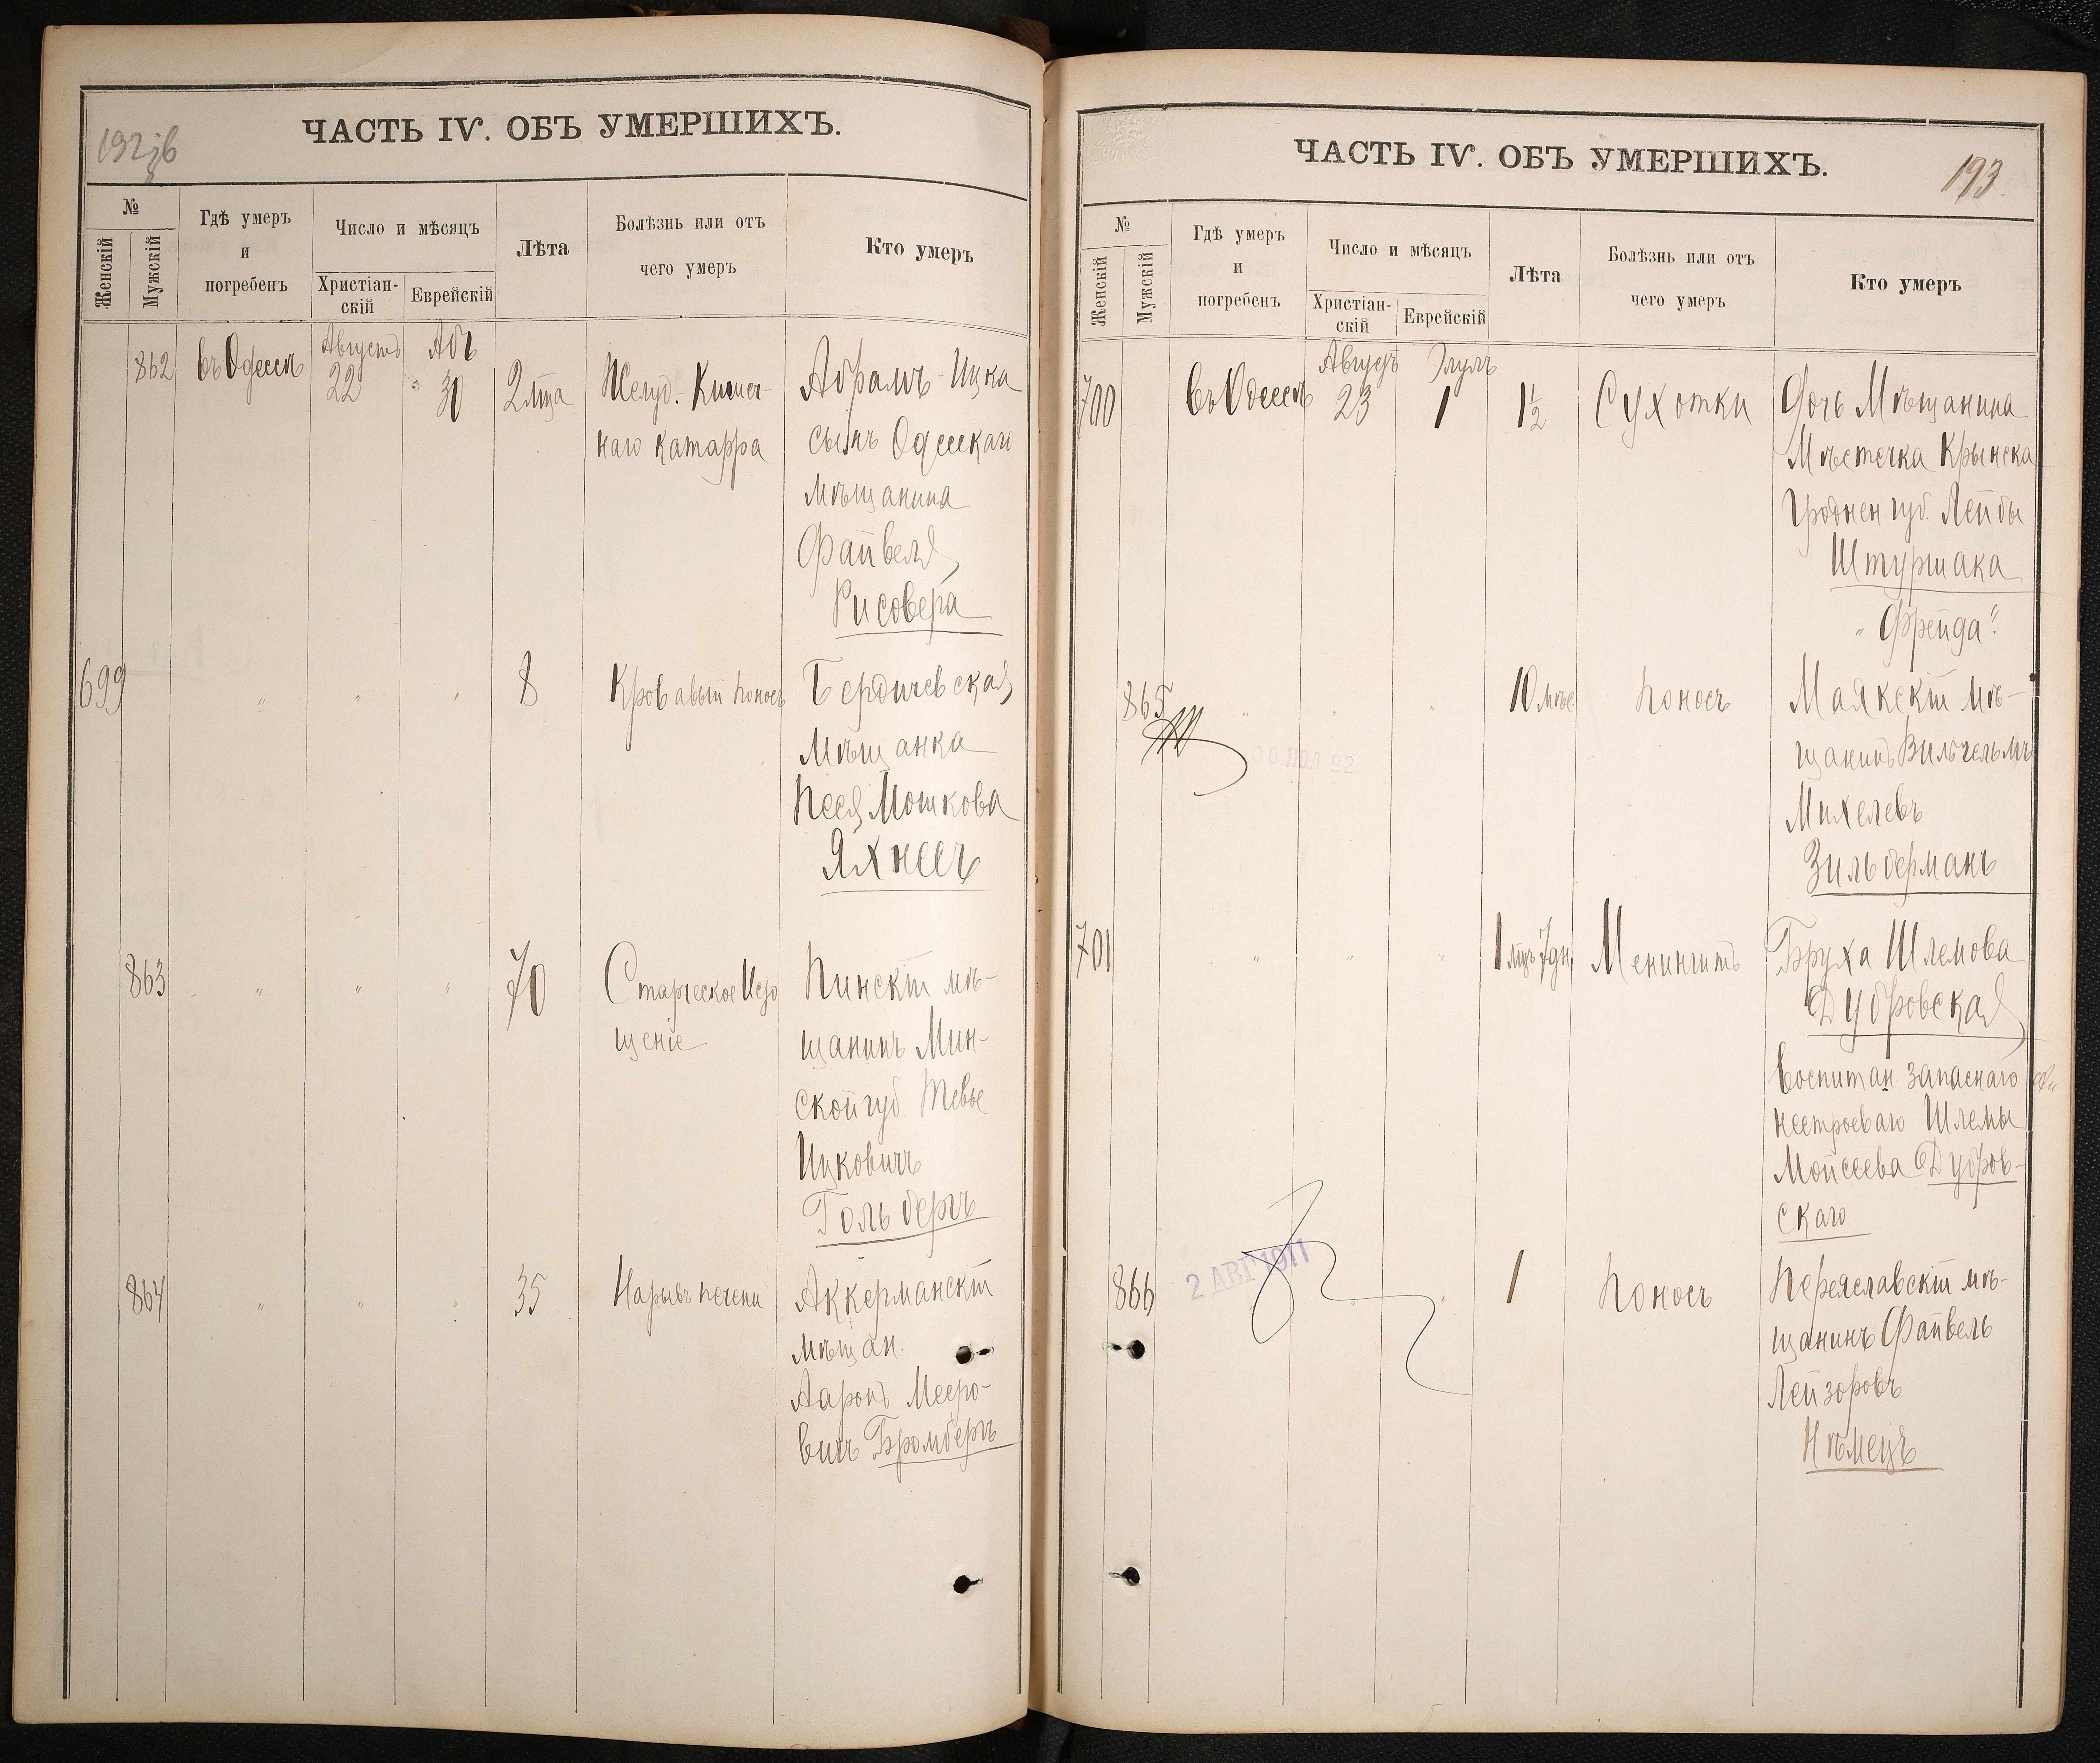 192 об
ЧАСТЬ IV. ОБЪ УМЕРШИХЪ.
№
Женскій
Мужскій
Гдѣ умеръ
и
погребенъ
Число и мѣсяцъ
Христіан-
скій
Еврейскій
Лѣта
Болѣзнь или отъ
чего умеръ
Кто умеръ
862
въ Одессѣ
Августъ
22
Абъ
30
2 мца
Желуд.- Кишеч-
наго катарра
Абрамъ-Ицка
сынъ Одесскаго
мѣщанина
Файвеля
Рисовера
699
"
"
"
8
Кровавый поносъ
Бердичевская
мѣщанка
Песя Мошкова
Яхнесъ
863
"
"
"
70
Старческое Исто
щеніе
Пинскій мѣ-
щанинъ Мин-
ской губ. Тевье
Ицковичъ
Гольбергъ
864
"
"
"
35
Нарывъ печени
Аккерманскій
мѣщан.
Ааронъ Мееро-
вичъ Бромбергъ
ЧАСТЬ IV. ОБЪ УМЕРШИХЪ.
193
№
Женскій
Мужскій
Гдѣ умеръ
и
погребенъ
Число и мѣсяцъ
Христіан-
скій
Еврейскій
Лѣта
Болѣзнь или отъ
чего умеръ
Кто умеръ
700
въ Одессѣ
Августъ
23
Элулъ
1
1½
Сухотки
Дочь Мѣщанина
Мѣстечка Крынска
Гроднен губ. Лейбы
Штурмака
"Фрейда"
865
"
"
"
30 ИЮЛ 92
10 мѣс
Поносъ
Маякскій мѣ-
щанинъ Вильгельмъ
Михелевъ
Зильберманъ
701
"
"
"
1 мцъ 7 дн
Менингитъ
Бруха Шлемова
Дубровская
воспитан. запаснаго
нестроеваго Шлемы
Мойсеева Дубров-
скаго
866
2 АВГ 1911
"
"
1
Поносъ
Переяславскій мѣ-
щанинъ Файвель
Лейзоровъ
Нѣмецъ